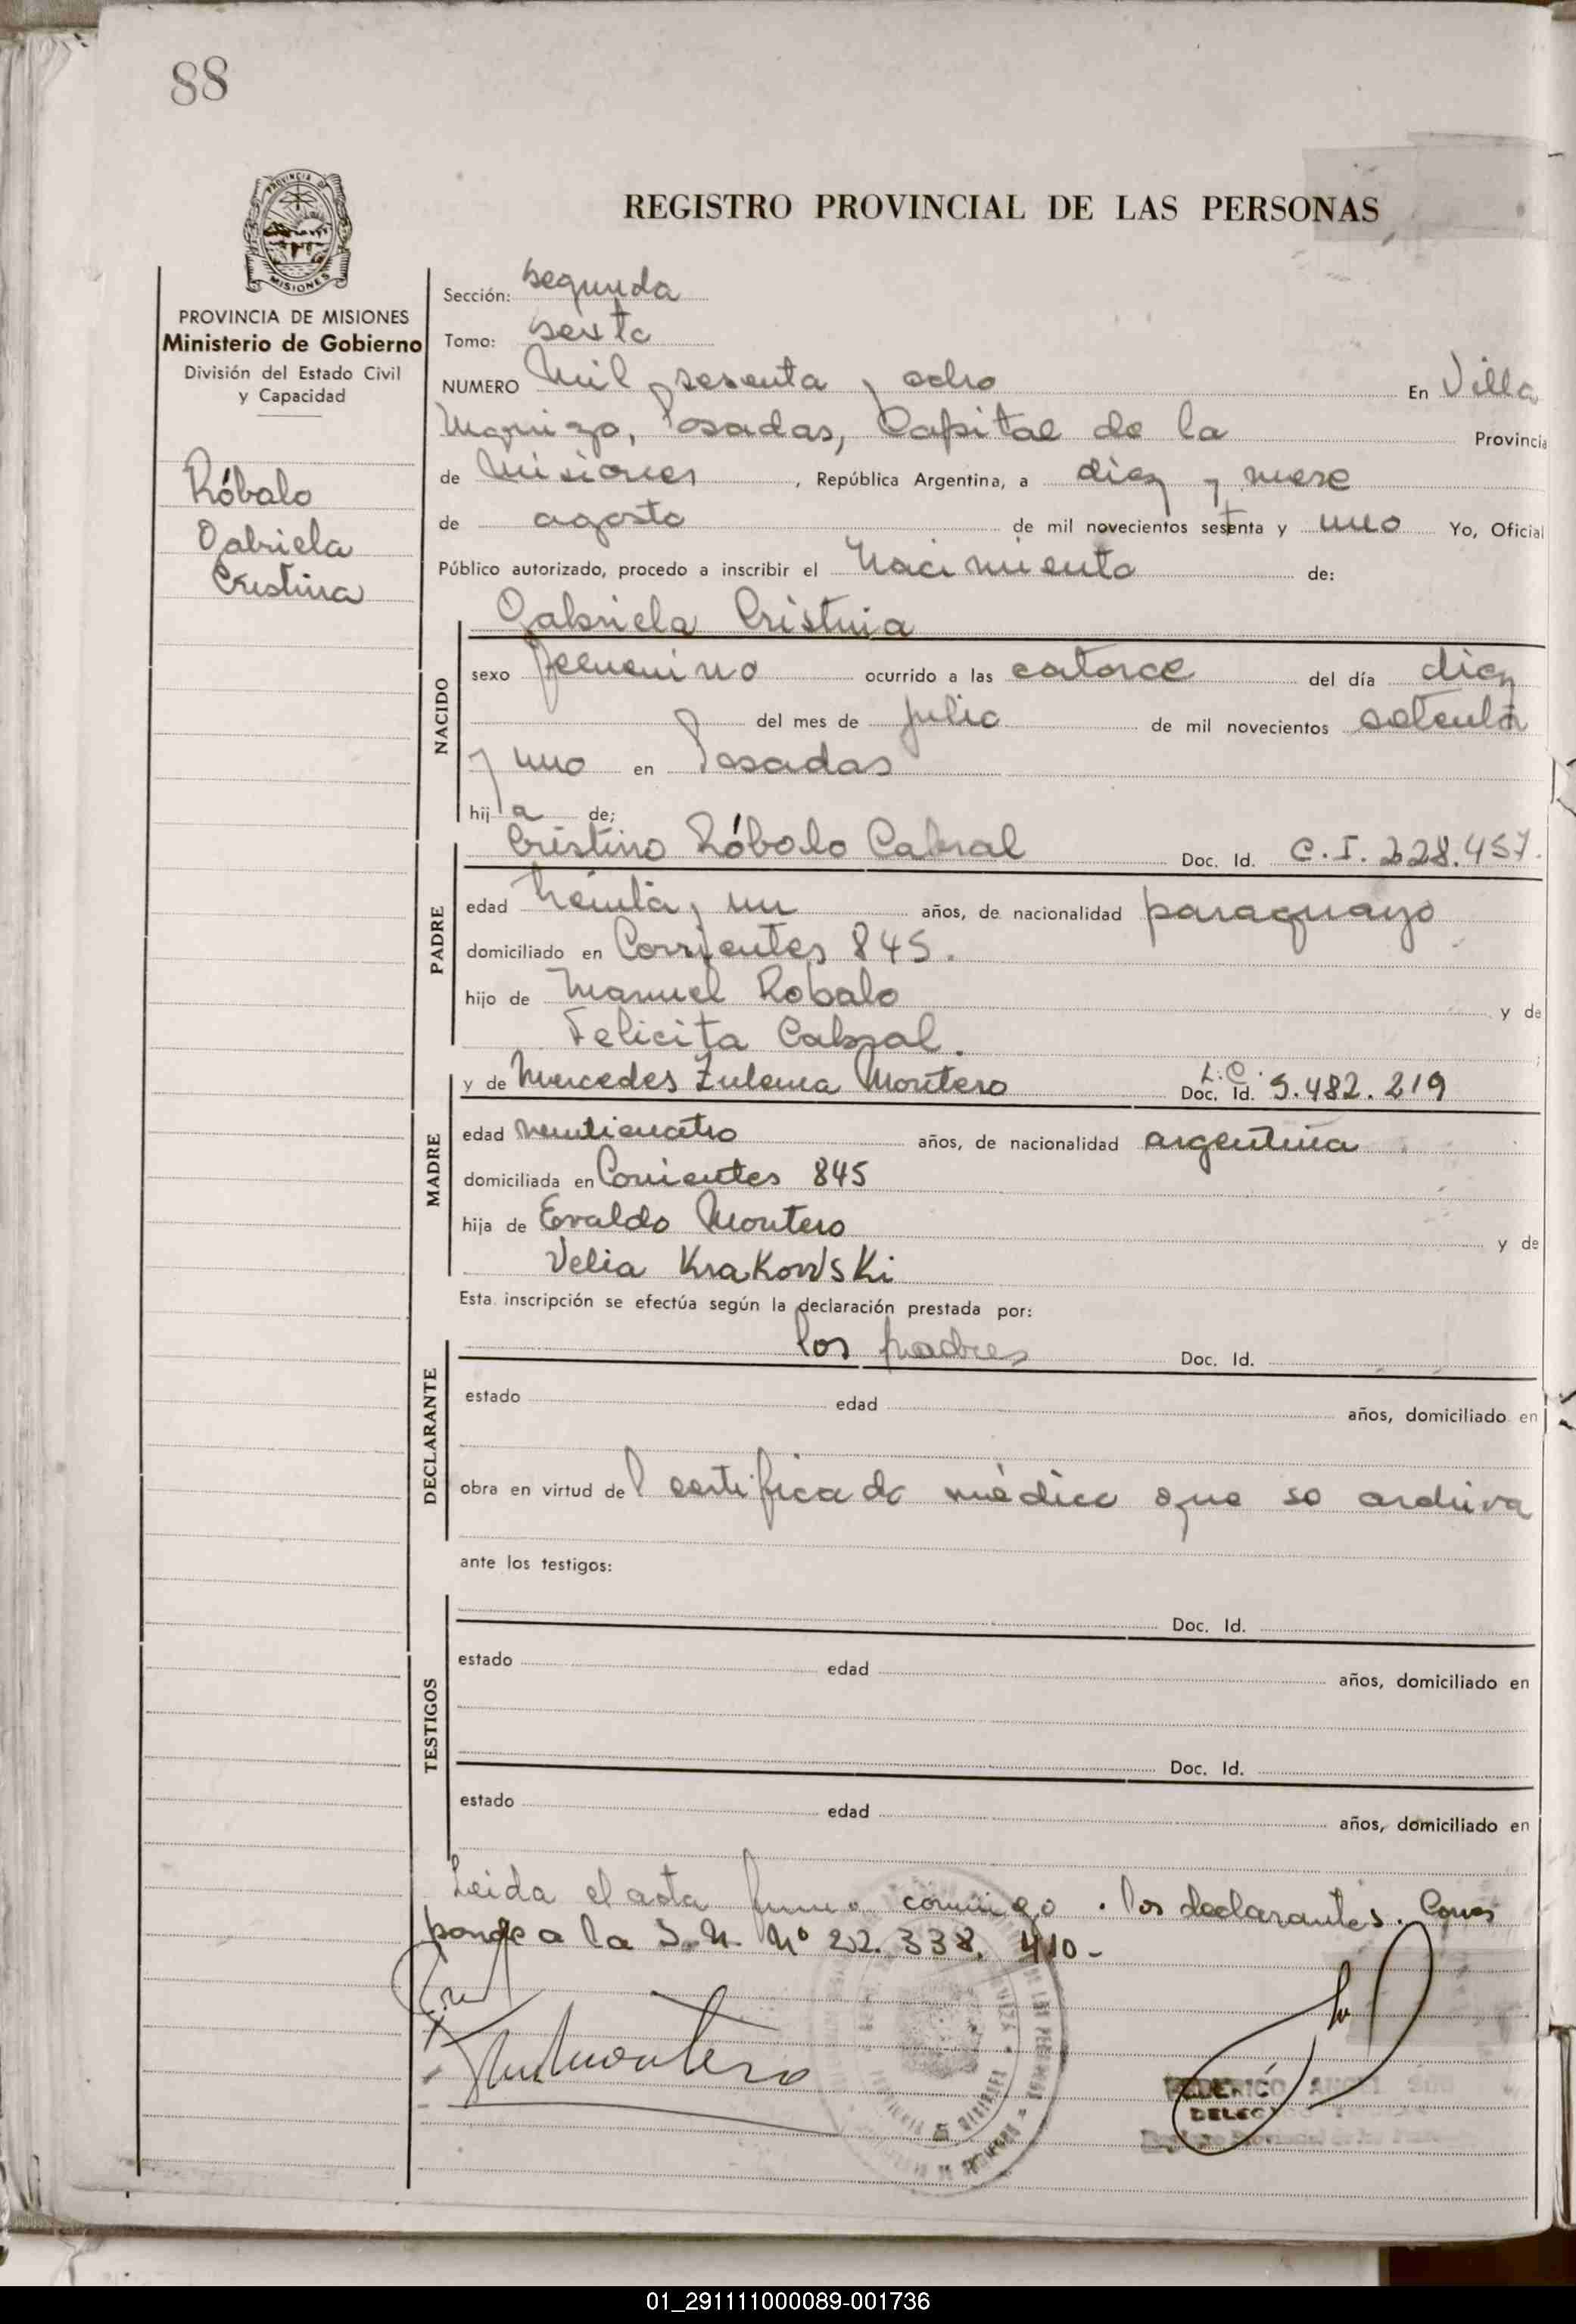 88
REGISTRO PROVINCIAL DE LAS PERSONAS
PROVINCIA DE
MISIONES
PROVINCIA DE MISIONES
Ministerio de Gobierno
División del Estado Civil
y Capacidad
Róbalo
Gabriela
Cristina
Sección: segunda
Tomo: sexto
NUMERO Mil sesenta y ocho En Villa
Posadas, Capital de la Provincia
de Misiones, República Argentina, a diez y nueve
de agosto de mil novecientos setenta y uno Yo, Oficial
Público autorizado, procedo a inscribir el Nacimiento de:
Gabriela Cristina
NACIDO
sexo femenino ocurrido a las catorce del día diez
del mes de julio de mil novecientos setenta
y uno en Posadas
hija de;
Cristino Róbalo Cabral Doc. Id. C.I. 228.457.
PADRE
edad treinta y un años, de nacionalidad paraguayo
domiciliado en Corrientes 845.
hijo de Manuel Robalo y de
Felicita Cabral.
y de Mercedes Zulema Montero L.C. Doc. Id. 5.482.219
MADRE
edad veinticuatro años, de nacionalidad argentina
domiciliada en Corrientes 845
hija de Evaldo Montero y de
Velia Krakowski
Esta inscripción se efectúa según la declaración prestada por:
los padres Doc. Id.
DECLARANTE
estado edad años, domiciliado en
obra en virtud del certificado médico que se archiva
ante los testigos:
Doc. Id.
TESTIGOS
estado edad años, domiciliado en
Doc. Id.
estado edad años, domiciliado en
Leida el acta conmigo los declarantes. Corres
ponde a la Nº 22.338.410-
Montero
01_291111000089-001736